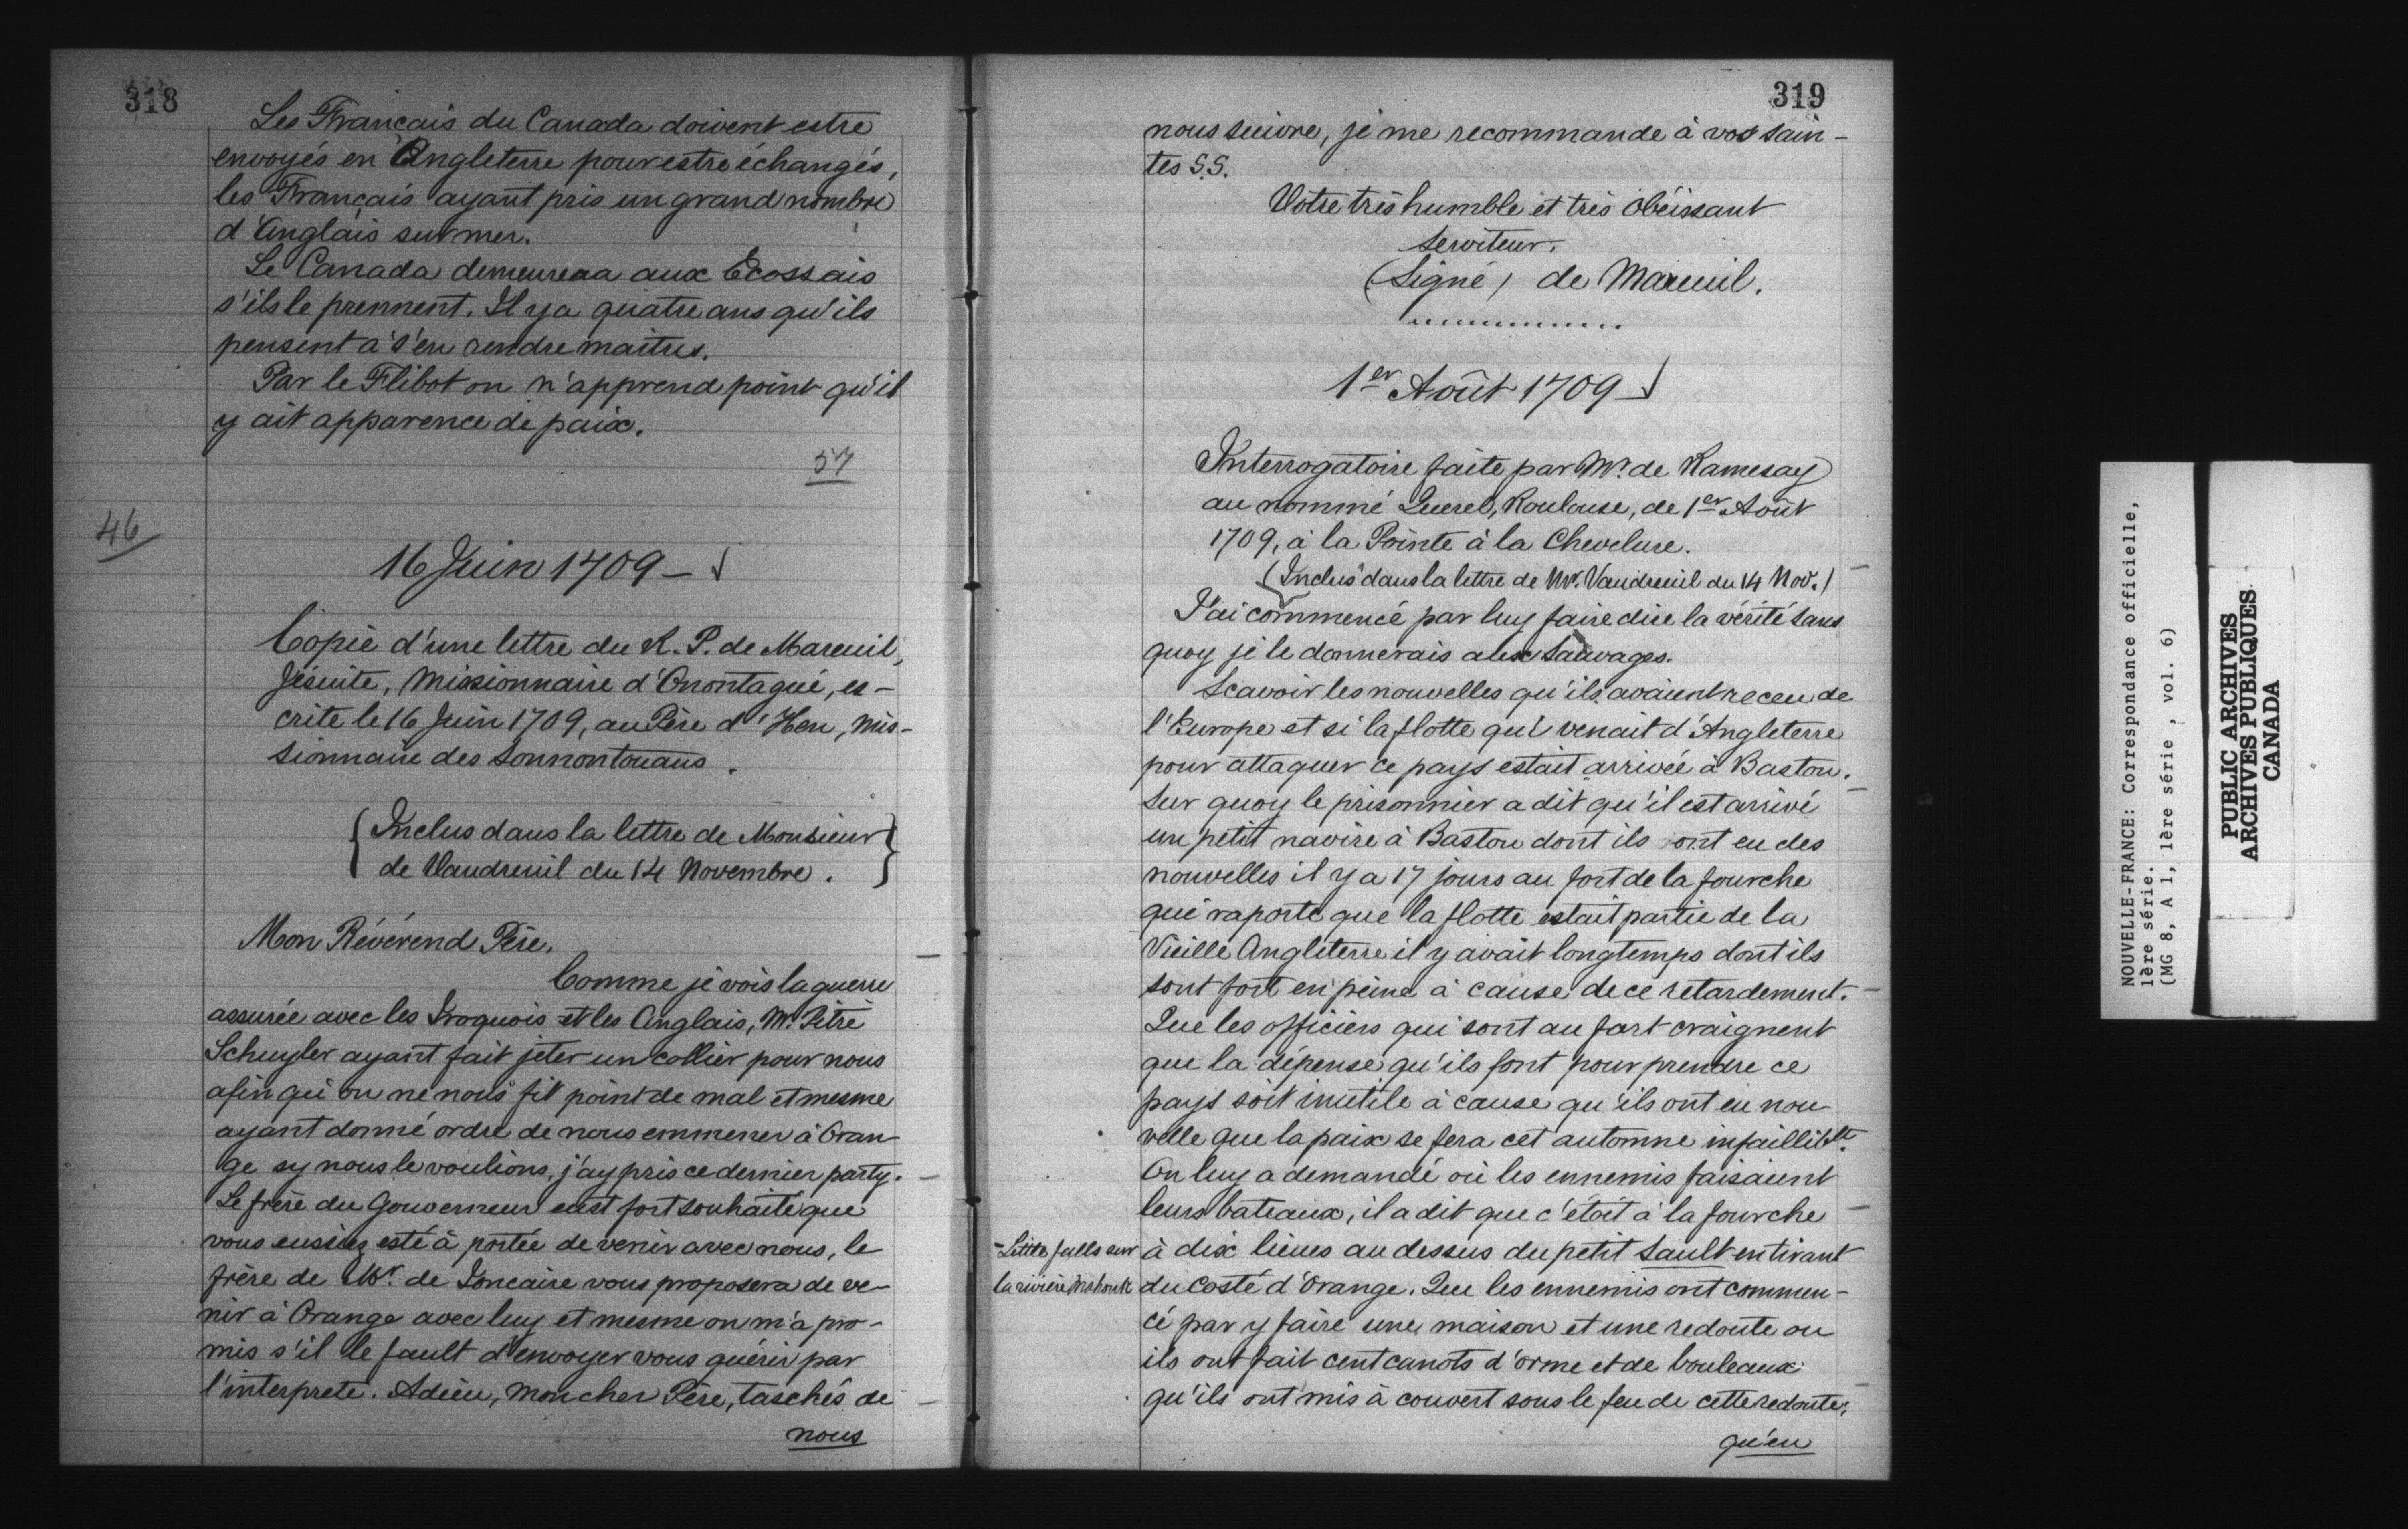 318
Les Français du Canada doivent estre
envoyés en Angleterre pour estre échangés,
les Français ayant pris un grand nombre
d'Anglais sur mer.
Le Canada demeurera aux Ecossais
s'ils le prennent. Il y a quatre ans qu'ils
pensent à s'en rendre maitres.
Par le Flibot on n'apprend point qu'il
y ait apparence de paix.
57
46
16 Juin 1709 -
Copie d'une lettre du R. P. de Mareuil,
Jésuite, Missionnaire d'Onontagué, es-
crite le 16 Juin 1709, au Père d'Heu, mis-
sionnaire des Sonnontouans.
{Inclus dans la lettre de Monsieur
de Vaudreuil du 14 Novembre.}
Mon Révérend Père,
Comme je vois la guerre
assurée avec les Iroquois et les Anglais, Mr. Pitre
Schuyler ayant fait jeter un collier pour nous
afin qu'on ne nous fit point de mal et mesme
ayant donné ordre de nous emmener à Oran-
ge sy nous le voulions, j'ay pris ce dernier party.
Le frère du Gouverneur eust fort souhaité que
vous eussiez esté à portée de venir avec nous, le
frère de Mr. de Joncaire vous proposera de ve-
nir à Orange avec luy et mesme on m'a pro-
mis s'il le fault d'envoyer vous quérir par
l'interprete. Adieu, mon cher Père, taschés de
nous
319
nous suivre, je me recommande à vos sain-
tes S.S.
Votre très humble et très obéissant
serviteur.
(Signé) de Mareuil.
..............
1er Août 1709
Interrogatoire faite par Mr. de Ramesay
au nommé Querel, Roulouse, de 1er Août
1709, à la Pointe à la Chevelure.
(Inclus dans la lettre de Mr. Vaudreuil du 14 Nov.)
J'ai commencé par luy faire dire la vérité sans
quoy je le donnerais aux Sauvages.
Scavoir les nouvelles qu'ils avaient receu de
l'Europe et si la flotte qui venait d'Angleterre
pour attaquer ce pays estait arrivée à Baston.
Sur quoy le prisonnier a dit qu'il est arrivé
un petit navire à Baston dont ils ont eu des
nouvelles il y a 17 jours au fort de la fourche
qui raporte que la flotte estait partie de la
Vieille Angleterre il y avait longtemps dont ils
sont fort en peine à cause de ce retardement.
Que les officiers qui sont au fort craignent
que la dépense qu'ils font pour prendre ce
pays soit inutile à cause qu'ils ont eu nou-
velle que la paix se fera cet automne infailliblt.
On luy a demandé où les ennemis faisaient
leurs bateaux, il a dit que c'étoit à la fourche
à dix lieues au dessus du petit Sault en tirant
- Little falls sur
la rivière Mohonk
du costé d'Orange. Que les ennemis ont commen-
cé par y faire une maison et une redoute ou
ils ont fait cent canots d'orme et de bouleaux
qu'ils ont mis à couvert sous le feu de cette redoute,
qu'en
NOUVELLE-FRANCE: Correspondance officielle,
1ère série.
(MG 8, A 1, 1ère série, vol. 6)
PUBLIC ARCHIVES
ARCHIVES PUBLIQUES
CANADA